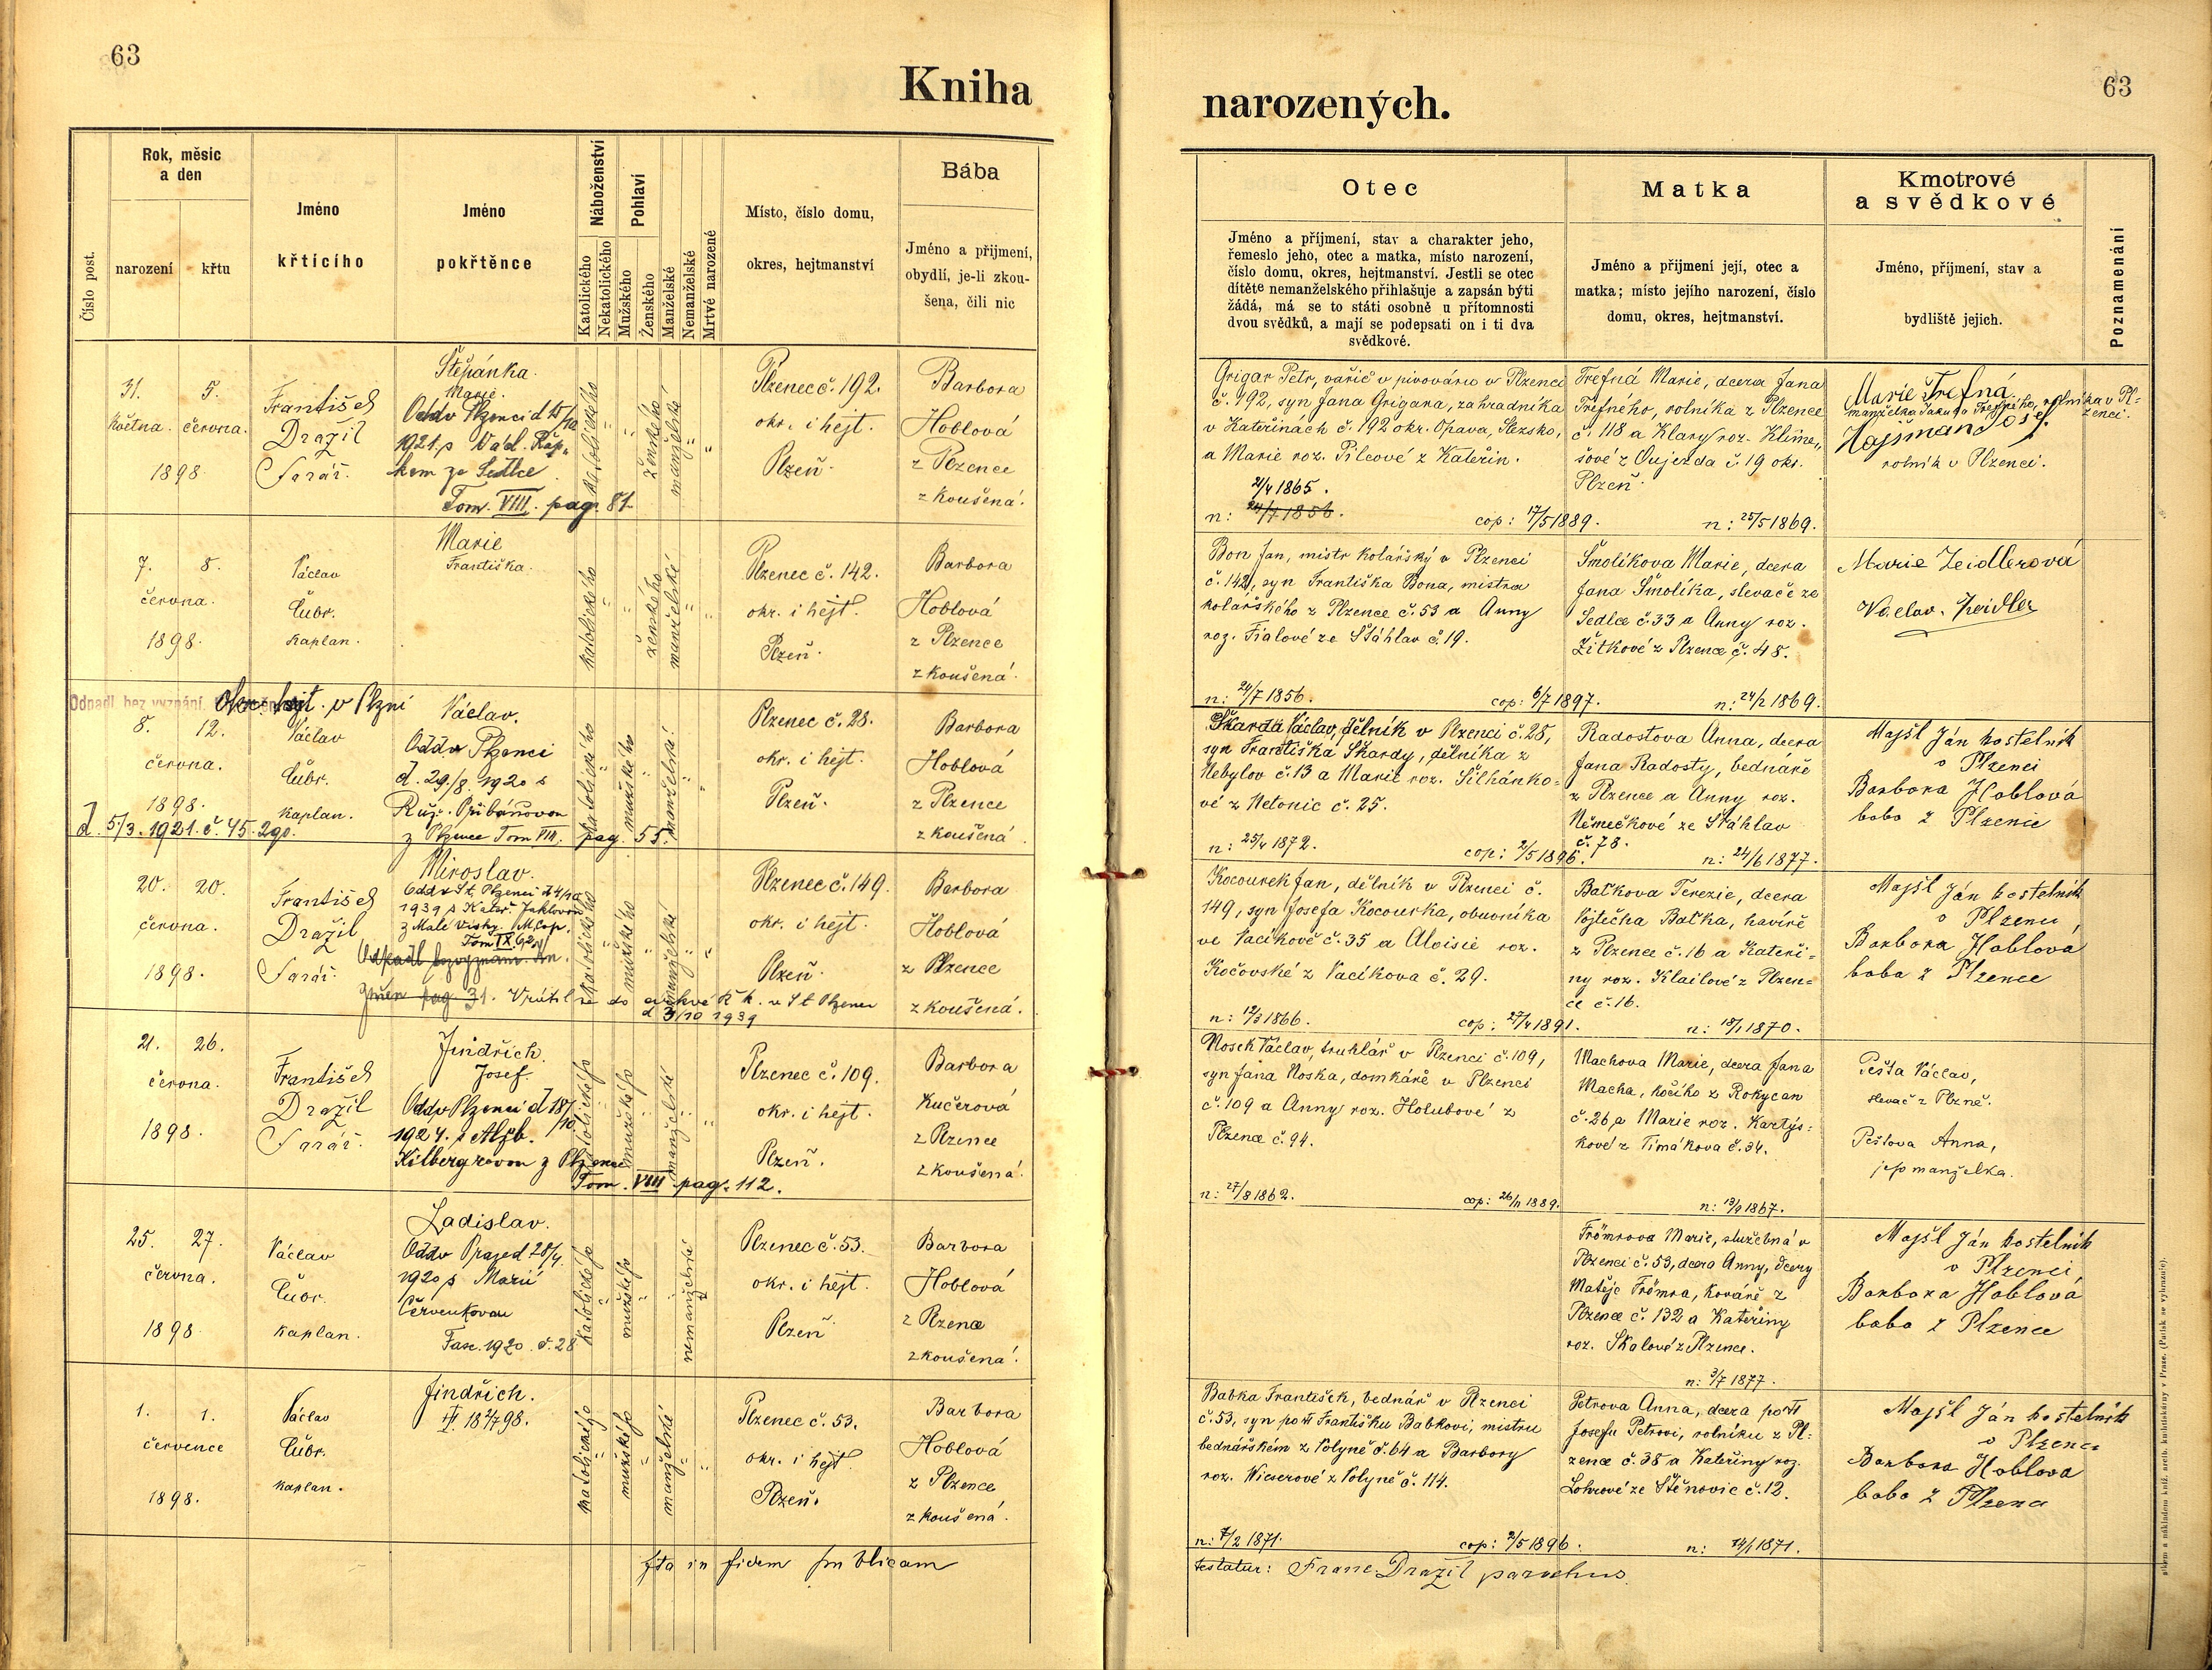 63
Kniha
Číslo post.
Rok, měsíc
a den
narození
křtu
Jméno
křtícího
Jméno
pokřtěnce
Náboženství
Katolického
Nekatolického
Pohlaví
Mužského
Ženského
Manželské
Nemanželské
Mrtvé narozené
Místo, číslo domu,
okres, hejtmanství
Bába
Jméno a příjmení,
obydlí, je-li zkou-
šena, čili nic
31. 5.
května. června.
1898
František
Dražil
farář.
Štěpánka.
Marie.
Odd. v Plzenci d. 15/10
1921 s Václ. Řep-
kem ze Sedlce
Tom. VIII. pag. 81
katolického
ženského
manželské
Plzenec č. 192.
okr. i hejt.
Plzeň.
Barbora
Hoblová
z Plzence
zkoušená.
7. 8.
června.
1898.
Václav
Čubr.
kaplan.
Marie
Františka.
katolického
ženského
manželské
Plzenec č. 142.
okr. i hejt.
Plzeň.
Barbora
Hoblová
z Plzence
zkoušená.
Odpadl bez vyznání.
Okr. hejt. v Plzni
8. 12.
června.
1898.
d. 5/3. 1921. č. 45.290.
Václav
Čubr.
kaplan.
Václav.
Odd. v Plzenci
d. 29/8. 1920 s
Růž. Přibáňovou
z Plzence Tom VIII. pag. 55.
katolického
mužského
manželské
Plzenec č. 28.
okr. i hejt.
Plzeň.
Barbora
Hoblová
z Plzence
zkoušená
20. 20.
června.
1898.
František
Dražil
farář.
Miroslav.
Odd. v St. Plzenci d. 4/10
1939 s Kateř. Jaklovou
z Malé Vísky. M. cop.
Tom IX, 92
Odpadl bez vyznání
pag. 31. Vrátil se do církve ř. k. v St Plzenci
d 3/10 1939
katolického
mužského
manželské
Plzenec č. 149.
okr. i hejt.
Plzeň.
Barbora
Hoblová
z Plzence
zkoušená.
21. 26.
června.
1898.
František
Dražil
farář.
Jindřich.
Josef.
Odd. v Plzenci d 18/10
1924. s Alžb.
Kilbergrovou z Plzence
Tom. VIII pag. 112.
katolického
mužského
manželské
Plzenec č. 109.
okr. i hejt.
Plzeň.
Barbora
Kučerová
z Plzence
zkoušená.
25. 27.
června.
1898
Václav
Čubr.
kaplan.
Ladislav.
Odd. v Praze d 28/4
1920 s Marií
Červenkovou
Fasc. 1920 č. 28
katolického
mužského
nemanželské
Plzenec č. 53.
okr. i hejt.
Plzeň
Barbora
Hoblová
z Plzence
zkoušená.
1. 1.
července
1898.
Václav
Čubr.
kaplan.
Jindřich.
katolického
mužského
manželské
Plzenec č. 53.
okr. i hejt.
Plzeň.
Barbora
Hoblová
z Plzence
zkoušená.
Ita in fidem publicam
63
narozených.
Otec
Jméno a příjmení, stav a charakter jeho,
řemeslo jeho, otec a matka, místo narození,
číslo domu, okres, hejtmanství. Jestli se otec
dítěte nemanželského přihlašuje a zapsán býti
žádá, má se to státi osobně u přítomnosti
dvou svědků, a mají se podepsati on i ti dva
svědkové.
Matka
Jméno a příjmení její, otec a
matka; místo jejího narození, číslo
domu, okres, hejtmanství.
Kmotrové
a svědkové
Jméno, příjmení, stav a
bydliště jejich.
Poznamenání
Grigar Petr, vařič v pivováru v Plzenci
č. 192, syn Jana Grigara, zahradníka
v Kateřinách č. 192 okr. Opava, Slezsko,
a Marie roz. Pilcové z Kateřin.
21/4 1865.
n: 24/7 1856.
cop: 17/5 1889.
Trefná Marie, dcera Jana
Trefného, rolníka z Plzence
č. 118 a Klary roz. Klime-
šové z Oujezda č. 19 okr.
Plzeň
n: 25/5 1869.
Marie Trefná
manželka Jakuba Trefného, rolníka v Pl-
zenci.
Hajšman Josef
rolník v Plzenci.
Bon Jan, mistr kolářský v Plzenci
č. 142, syn Františka Bona, mistra
kolářského z Plzence č. 53 a Anny
roz. Fialové ze Šťáhlav č. 19.
n: 24/7 1856.
cop: 6/7 1897.
Šmolíkova Marie, dcera
Jana Šmolíka, slevače ze
Sedlce č. 33 a Anny roz.
Žitkové z Plzence č. 48.
n: 24/2 1869.
Marie Zeidlerová
Václav Zeidler
Škarda Václav, dělník v Plzenci č. 28,
syn Františka Škardy, dělníka z
Nebylov č. 13 a Marie roz. Šilhánko-
vé z Netonic č. 25.
n: 25/4 1872.
cop: 2/5 1896.
Radostova Anna, dcera
Jana Radosty, bednáře
z Plzence a Anny roz.
Němečkové ze Šťáhlav
č. 78.
n: 24/6 1877.
Majšl Ján kostelník
v Plzenci
Barbora Hoblová
baba z Plzence
Kocourek Jan, dělník v Plzenci č.
149, syn Josefa Kocourka, obuvníka
ve Vacíkově č. 35 a Aloisie roz.
Kočovské z Vacíkova č. 29.
n: 12/3 1866.
cop: 27/4 1891.
Baťkova Terezie, dcera
Vojtěcha Baťka, havíře
z Plzence č. 16 a Kateři-
ny roz. Klailové z Plzen-
ce č. 16.
n: 18/1 1870.
Majšl Ján kostelník
v Plzenci
Barbora Hoblová
baba z Plzence
Nosek Václav, truhlář v Plzenci č. 109,
syn Jana Noska, domkáře v Plzenci
č. 109 a Anny roz. Holubové z
Plzence č. 94.
n: 27/8 1862.
cop: 26/11 1889.
Machova Marie, dcera Jana
Macha, kočího z Rokycan
č. 26, a Marie roz. Kartýs-
kové z Timákova č. 34.
n: 13/9 1867.
Pešta Václav,
slevač z Plzně.
Peštova Anna,
jeho manželka.
Frömrova Marie, služebná v
Plzenci č. 53, dcera Anny, dcery
Matěje Frömra, kováře z
Plzence č. 132 a Kateřiny
roz. Skalové z Plzence.
n: 3/7 1877.
Majšl Ján kostelník
v Plzenci
Barbora Hoblová
baba z Plzence
Babka František, bednář v Plzenci
č. 53, syn po Františku Babkovi, mistru
bednářském z Volyně č. 64 a Barbory
roz. Wieserové z Volyně č. 114.
n: 7/2 1871.
cop: 2/5 1896.
Petrova Anna, dcera po
Josefu Petrovi, rolníku z Pl-
zence č. 38 a Kateřiny roz.
Lohrové ze Štěnovic č. 12.
n: 14/1 1871.
Majšl Ján kostelník
v Plzenci
Barbora Hoblova
baba z Plzence
testatur: Franc. Dražil parochus